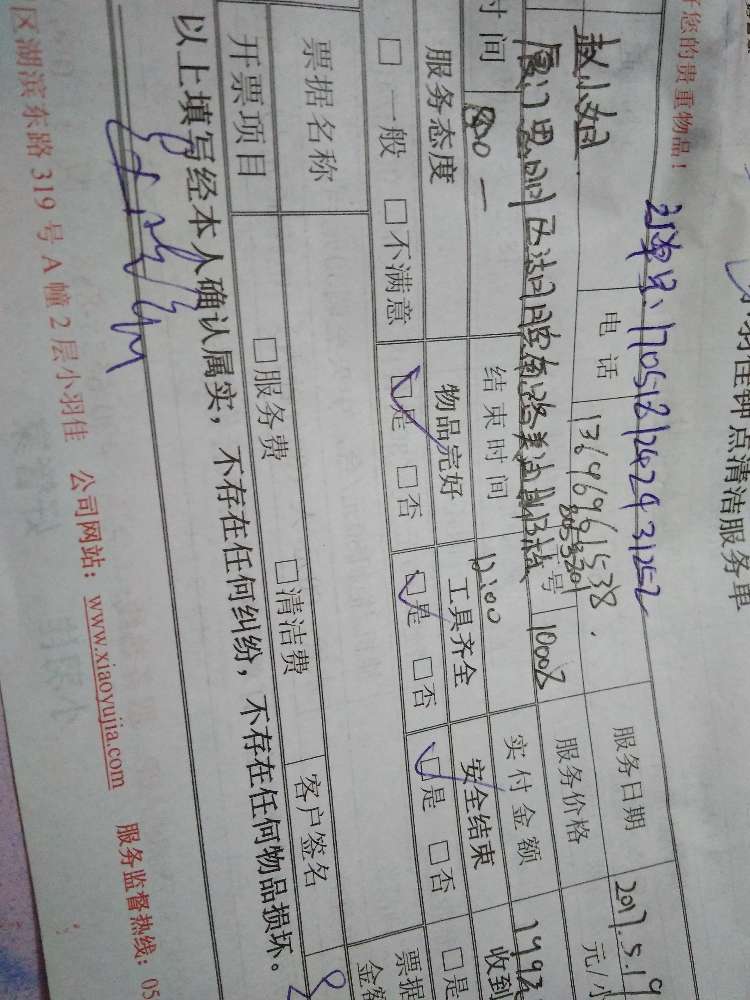 好您的贵重物品！
羽佳钟点清洁服务单
订单号：17051812424931252
赵小姐 电话 13696961538. 服务日期 2017.5.19
服务价格 元/小
时间 800 一 结束时间 12:00 号 10008 实付金额
服务态度 物品完好 工具齐全 安全结束 收到
□一般 □不满意 □是 □否 □是 □否 □是 □否 □是
票据名称 客户签名 票据
金额
开票项目 □服务费 □清洁费
以上填写经本人确认属实，不存在任何纠纷，不存在任何物品损坏。
区湖滨东路319号A幢2层小羽佳 公司网站：www.xiaoyujia.com 服务监督热线：05